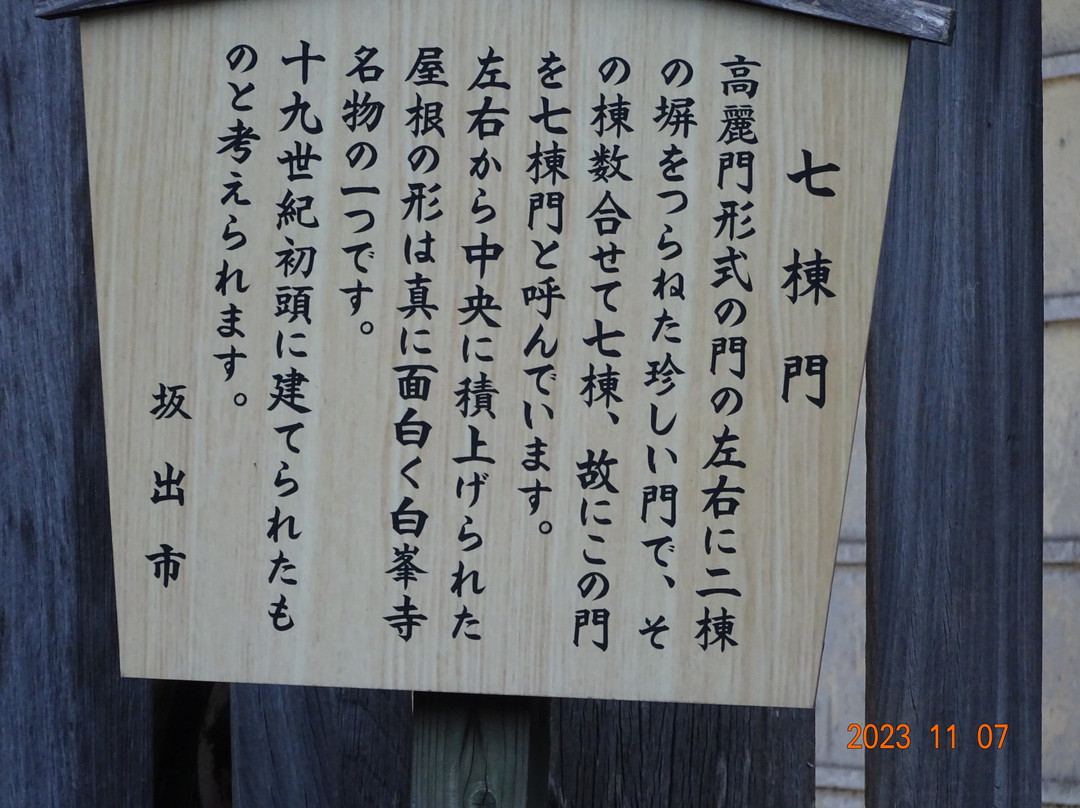 七棟門
高麗門形式の門の左右に二棟
の塀をつらねた珍しい門で、そ
の棟数合せて七棟、故にこの門
を七棟門と呼んでいます。
左右から中央に積上げられた
屋根の形は真に面白く白峯寺
名物の一つです。
十九世紀初頭に建てられたも
のと考えられます。
坂出市
2023 11 07